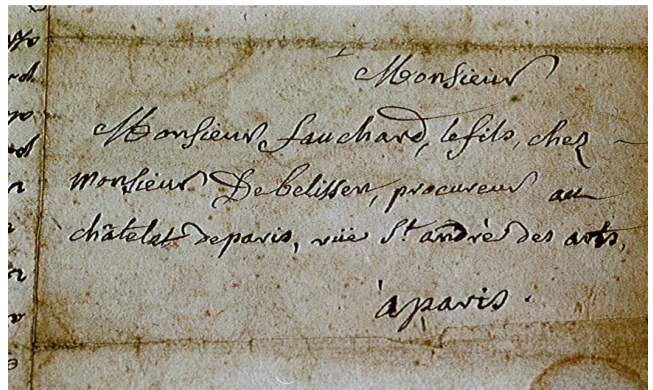 Monsieur
Monsieur fauchard, le fils, chez
monsieur Debelissen, procureur au
châtelet deparis, rüe St. andrè des arts,
àparis.